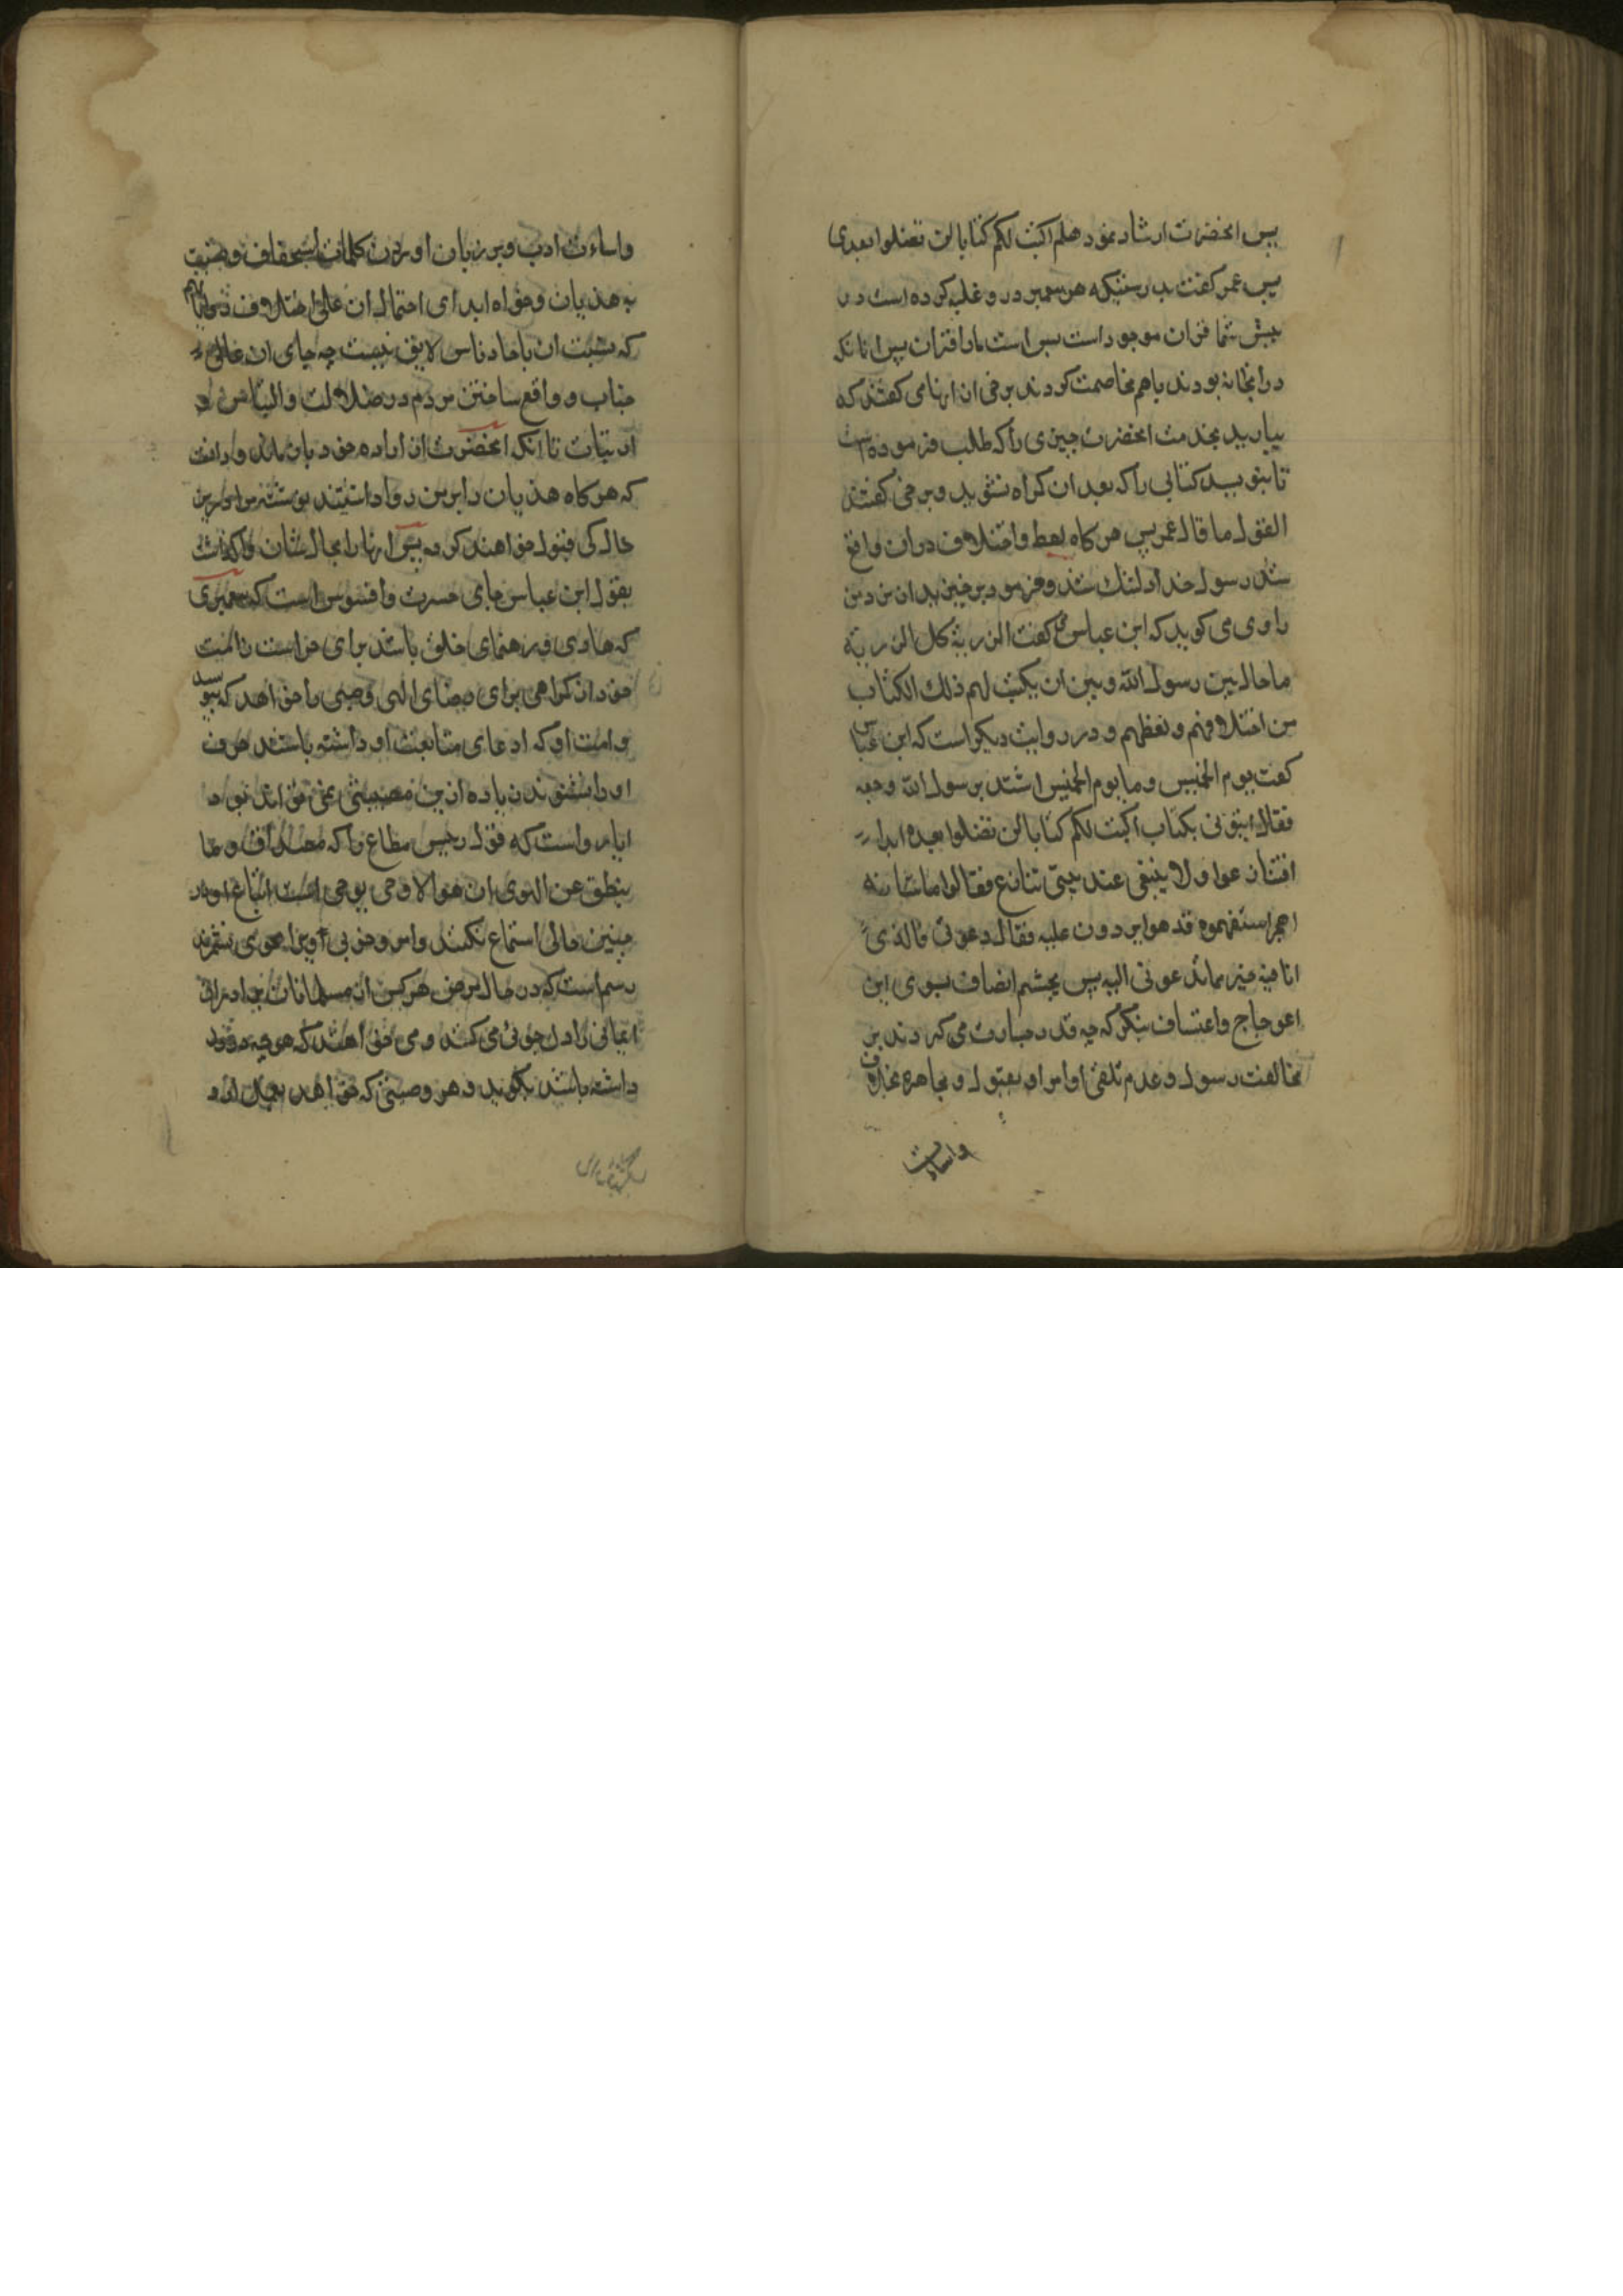 پس انحضرت ارشاد نمود هلم اکتب لکم کتابا لن تضلوا بعدی
پس عمر گفت بدرستیکه هر پیمبر درد غلبه کرده است در
پیش شما قران موجود است بس است مارا قران پس انانکه
درانخانه بودند باهم مخاصمت کردند برخی از انها می گفتند که
بیارید بخدمت انحضرت چیزی را که طلب فرموده است
تا بنویسد کتابی را که بعد ازان گمراه نشوید و برخی گفتند
القول ما قال عمر پس هر گاه لعط و اختلاف دران واقع
شد رسول خدا دلتنک شد و فرمود برخیزید از نزد من
راوی می گوید که ابن عباس گفت ان الرزیه کل الرزیه
ما حال بین رسول الله و بین ان یکتب لهم ذلک الکتاب
من اختلافهم و لعظهم و در روایت دیگر است که ابن عباس
گفت یوم الخمیس و ما یوم الخمیس اشتد برسول الله وجعه
فقال ایتونی بکتاب اکتب لکم کتابا لن تضلوا بعده ابدا
فتنازعوا و لا ینبغی عند نبی تنازع فقالوا ما شانه
اهجر استفهموه فذهبوا یردون علیه فقال دعونی فالذی
انا فیه خیر مما تدعونی الیه پس بچشم انصاف بسوی این
اعوجاج و اعتساف بنگر که چه قدر جسارت می کردند بر
مخالفت رسول و عدم تلقی اوامر او بقبول و مجاهره بخلاف
واساءت
واساءت ادب و بر زبان اوردن کلمات استخفاف و نسبت
به هذیان و خواه ابدای احتمال ان علی اختلاف
که نسبت ان باحاد ناس لایق نیست چه جای ان
جناب و واقع ساختن مردم در ضلالت و التباس و
ارتیاب تا انکه انحضرت از اراده خود باز ماند و دانست
که هرگاه هذیان را بر من روا داشتند نوشته مرا درین
حال کی قبول خواهند کرد پس انها را بحال شان واگذاشت
بقول ابن عباس جای حسرت و افسوس است که پیمبری
که هادی و رهنمای خلق باشد برای حراست امت
خود از گمراهی برای رضای الهی وصیتی را خواهد که بنویسد
و امت او که ادعای متابعت او داشته باشند حرف
او را نشنوند زیاده از این مصیبتی نمی تواند بود
ایا رواست که قول رئیس مطاع را که مصداق و ما
ینطق عن الهوی ان هو الا وحی یوحی است اتباع او در
چنین حالی استماع نکنند و امر وجوبی او را بجوی نشمرند
رسم است که در حال مرض هر کس از مسلمانان برادران
ایمانی را دلجوئی می کنند و می خواهند که هر چه
داشته باشد بگوید و هر وصیتی که خواهد بعمل ارد و